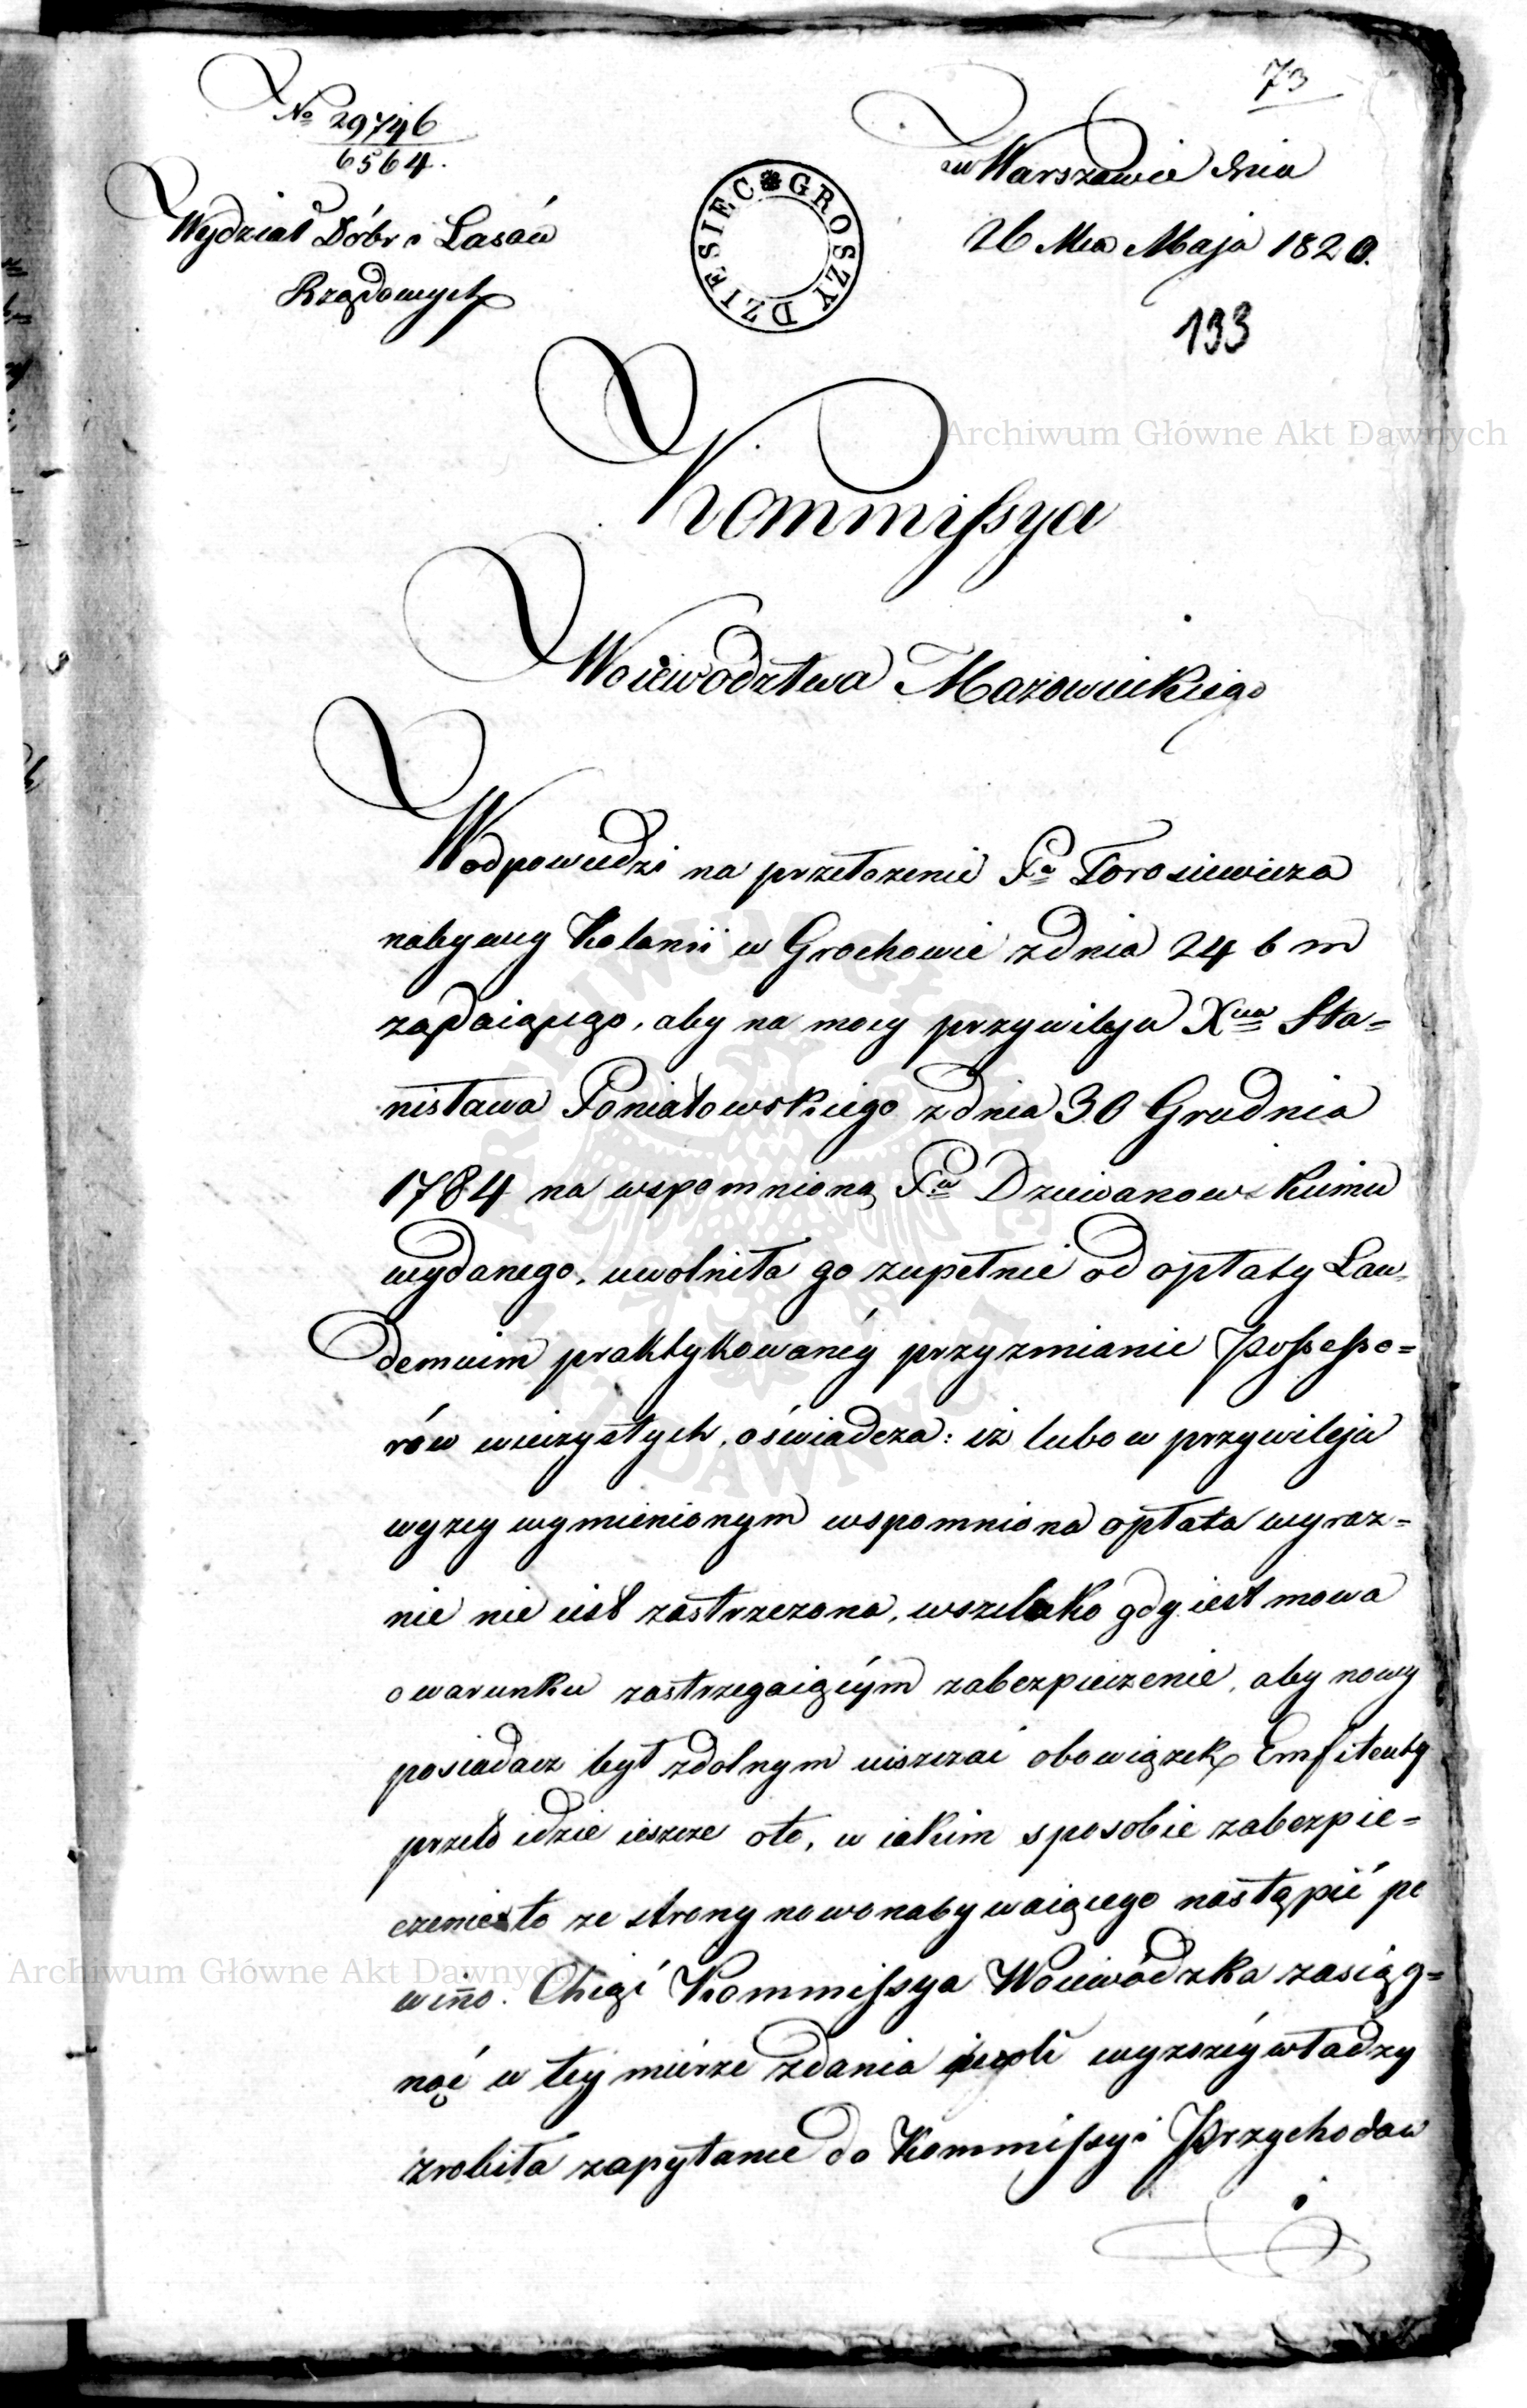 73
No 29746
6564.
w Warszawie dnia
26 Mca Maja 1820.
Wydział Dóbr i Lasów
Rządowych
DZIESIEC GROSZY
193
Kommissya
Woiewodztwa Mazowieckiego
W odpowiedzi na przełożenie Pa Torosiewicza
nabywcy Kolonii w Grochowie z dnia 24 b m
żądaiącego, aby na mocy przywileju Xcia Sta=
nisława Poniatowskiego z dnia 30 Grudnia
1784 na wspomnioną Pu Dziewanowskiemu
wydanego, uwolniła go zupełnie od opłaty Lau=
demium praktykowanéy przy zmianie Possesso=
rów wieczystych, oświadcza: iż lubo w przywileju
wyżey wymienionym wspomniona opłata wyraz=
nie nie iest zastrzeżona, wszelako gdy iest mowa
o warunku zastrzegaiącym zabezpieczenie, aby nowy
posiadacz był zdolnym uiszczać obowiązek Emfiteuty
przeto idzie ieszcze oto, w iakim sposobie zabezpie=
czenie to ze strony nowonabywaiącego nastąpić po
winno. Chcąc Kommissya Woiewódzka zasiąg=
nąć w tey mierze zdania wyższéy władzy
zrobiła zapytanie do Kommissyi Przychodów
i
Archiwum Główne Akt Dawnych
Archiwum Główne Akt Dawnych
ARCHIWUM GŁÓWNE AKT DAWNYCH